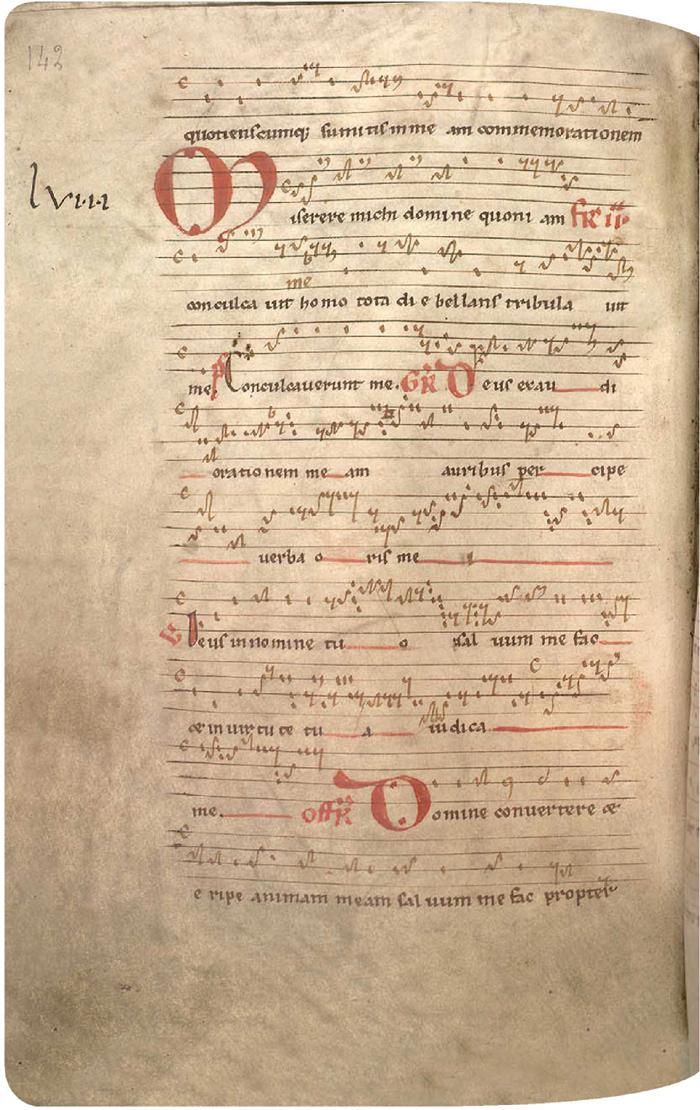 142
quotienscumq; sumitis in me am commemorationem
lviii
Miserere michi domine quoni am fR ii
me
conculca uit homo tota di e bellans tribula uit
me. Ps Conculcauerunt me. GR Deus exau di
orationem me am auribus per cipe
uerba o ris me i
V Deus in nomine tu o sal uum me fac
et in uirtu te tu a iudica
me. Off R Domine conuertere et
e ripe animam meam sal uum me fac propter